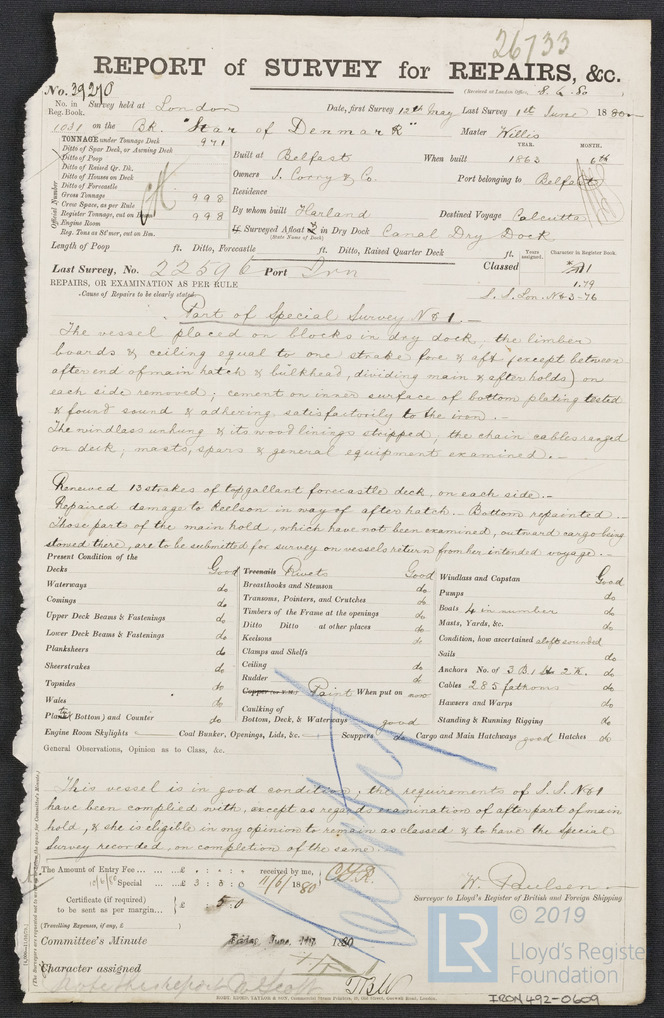 26733
REPORT of SURVEY for REPAIRS, &c.
No. 39270
(Received at London Office 8. 6. 80
No. in Reg. Book. Survey held at London Date, first Survey 12th May Last Survey 1st June 1880
1031 on the Bk. "Star of Denmark" Master Willis
TONNAGE under Tonnage Deck 971
Ditto of Spar Deck, or Awning Deck
Ditto of Poop
Ditto of Raised Qr. Dk.
Ditto of Houses on Deck
Ditto of Forecastle
Gross Tonnage 998
Crew Space, as per Rule
Register Tonnage, cut on Bm 998
Engine Room
Reg. Tons as St'mer, cut on Bm.
Official Number
Built at Belfast When built YEAR. 1863 MONTH. 6th
Owners J. Corry & Co. Port belonging to Belfast
Residence
By whom built Harland Destined Voyage Calcutta
Surveyed Afloat & in Dry Dock Canal Dry Dock
(State Name of Dock)
Length of Poop ft. Ditto, Forecastle ft. Ditto, Raised Quarter Deck ft.
Years assigned. Character in Register Book.
Last Survey, No. 22596 Port Irn Classed
1.79
REPAIRS, OR EXAMINATION AS PER RULE
Cause of Repairs to be clearly stated.
S. S. Lon. No 3-76
Part of Special Survey No 1.
The vessel placed on blocks in dry dock, the limber
boards & ceiling equal to one strake fore & aft (except between
after end of main hatch & bulkhead, dividing main & after holds) on
each side removed; cement on inner surface of bottom plating tested
& found sound & adhering satisfactorily to the iron.
The windlass unhung & its wood linings stripped; the chain cables ranged
on deck; masts, spars & general equipment examined.
Renewed 13 strakes of topgallant forecastle deck, on each side.
Repaired damage to keelson in way of after hatch. Bottom repainted.
Those parts of the main hold, which have not been examined, outward cargo being
stowed there, are to be submitted for survey on vessels return from her intended voyage.
Present Condition of the
Decks Good
Waterways do
Comings do
Upper Deck Beams & Fastenings do
Lower Deck Beams & Fastenings do
Planksheers do
Sheerstrakes do
Topsides do
Wales do
Plank (Bottom) and Counter do
Treenails Rivets Good
Breasthooks and Stemson do
Transoms, Pointers, and Crutches do
Timbers of the Frame at the openings do
Ditto Ditto at other places do
Keelsons do
Clamps and Shelfs
Ceiling do
Rudder do
Paint When put on now
Caulking of Bottom, Deck, & Waterways good
Windlass and Capstan Good
Pumps do
Boats 4 in number do
Masts, Yards, &c. do
Condition, how ascertained aloft sounded
Sails do
Anchors No. of 3 B. 1 St. 2 K. do
Cables 285 fathoms do
Hawsers and Warps do
Standing & Running Rigging do
Engine Room Skylights Coal Bunker, Openings, Lids, &c. Scuppers do Cargo and Main Hatchways good Hatches do
General Observations, Opinion as to Class, &c.
This vessel is in good condition; the requirements of S. S. No 1
have been complied with, except as regards examination of after part of main
hold, & she is eligible in my opinion to remain as classed & to have the Special
Survey recorded, on completion of the same.
The Amount of Entry Fee £ : : received by me,
Special £ 3 : 3 : 0 11/6/1880
Certificate (if required) to be sent as per margin £ : 5 : 0
(Travelling Expenses, if any, £ )
W. Paulsen
Surveyor to Lloyd's Register of British and Foreign Shipping
Committee's Minute Friday June, 1880
Character assigned
© 2019
LR
Lloyd's Register
Foundation
IRON492-0609